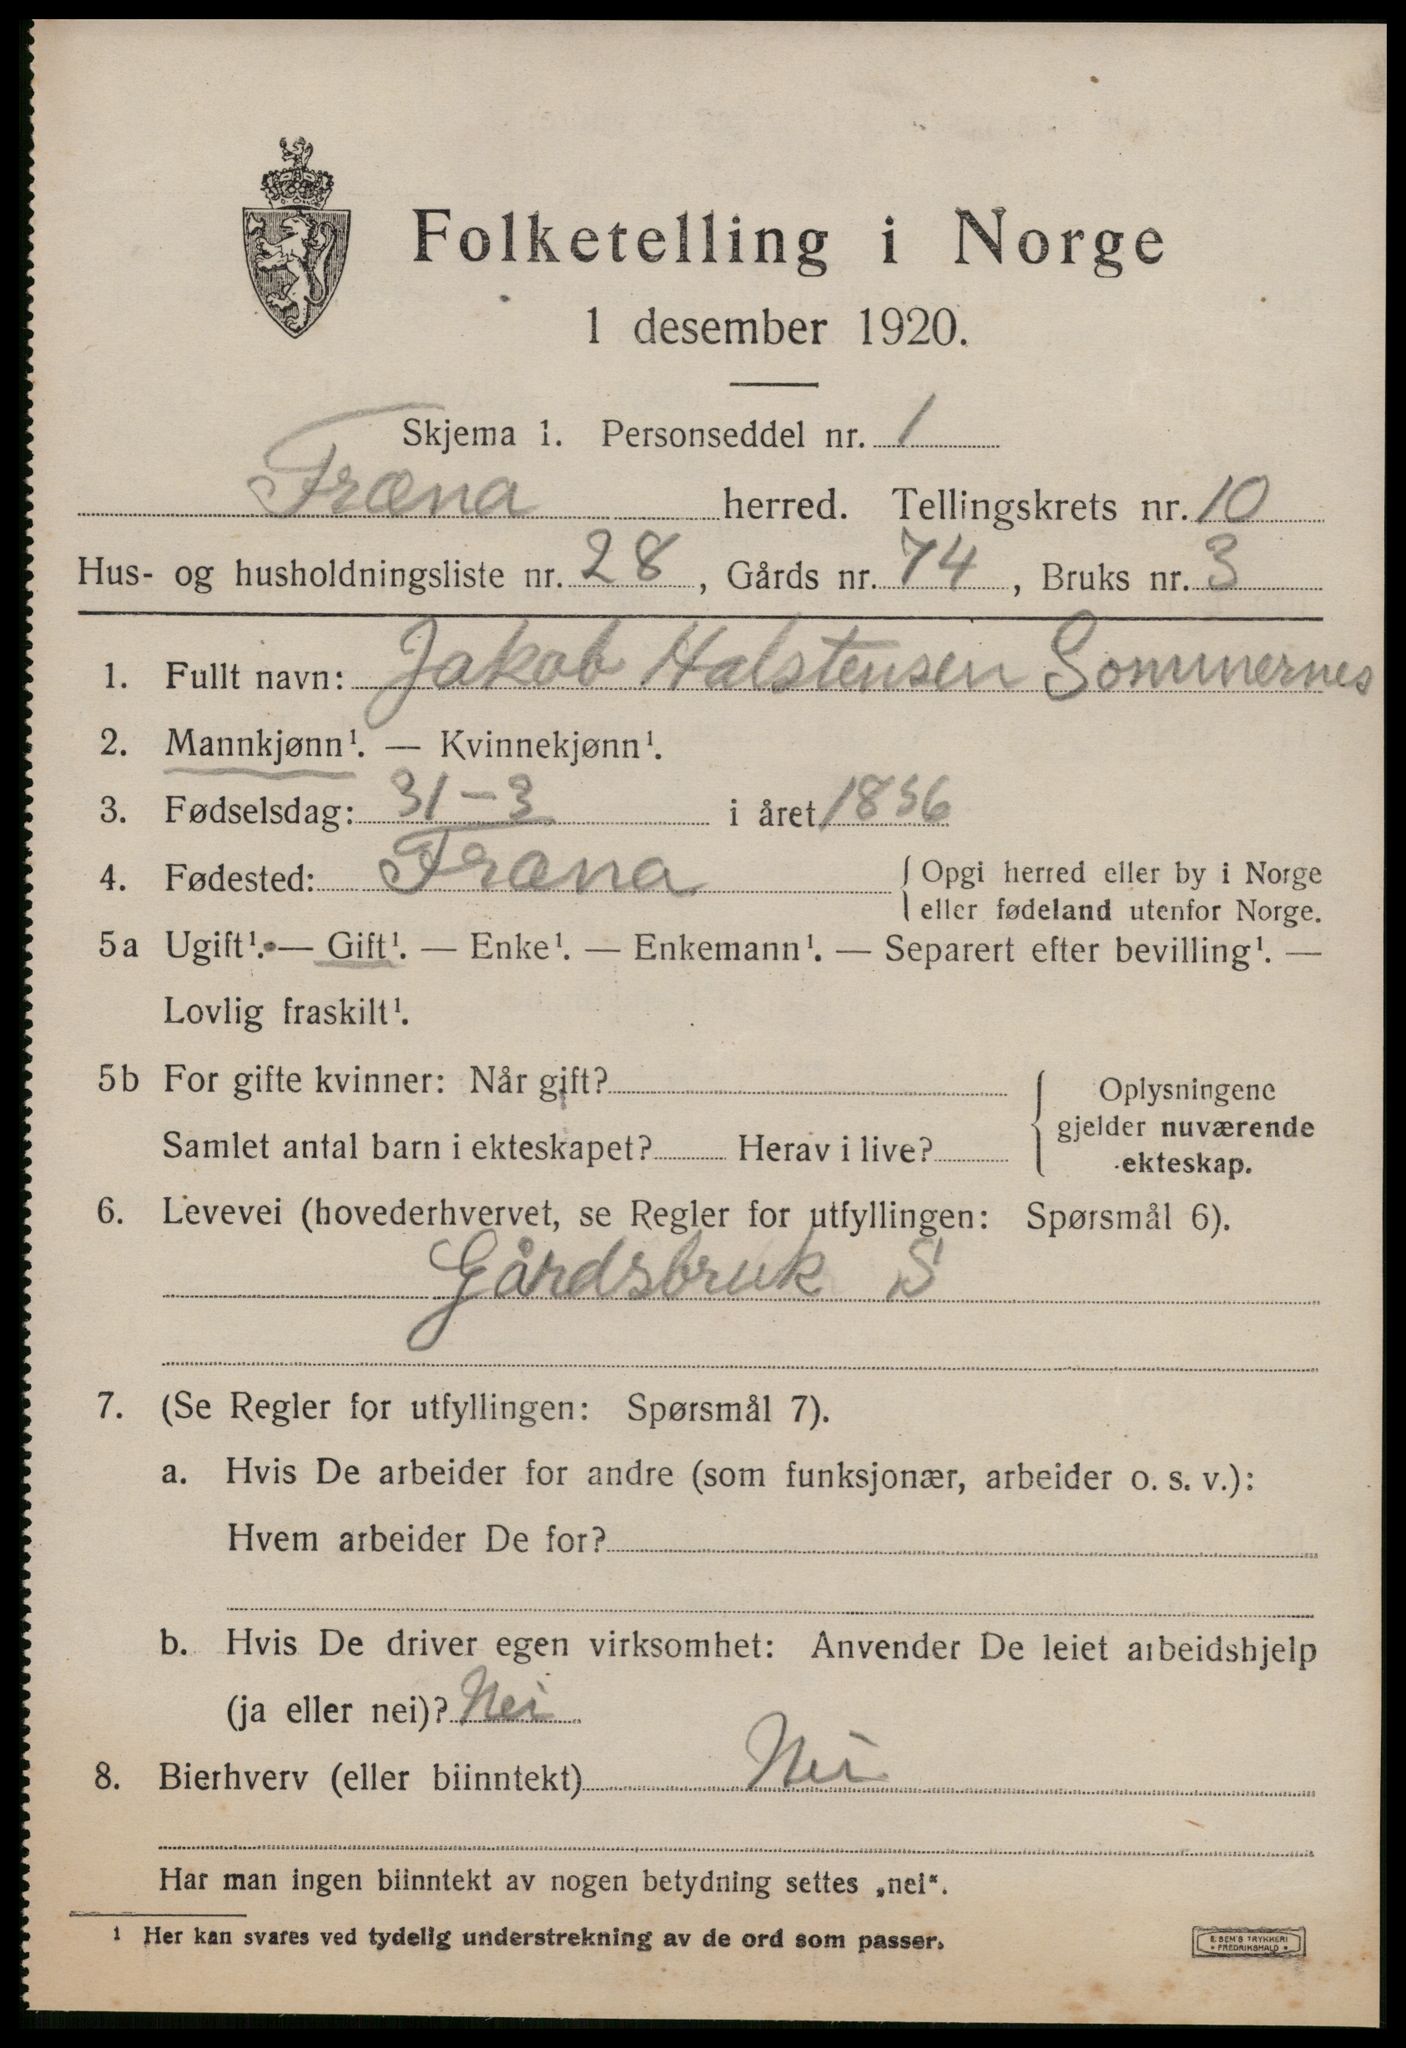 Folketelling i Norge
1 desember 1920.
Skjema 1. Personseddel nr. 1
Fræna herred. Tellingskrets nr. 10
Hus- og husholdningsliste nr. 28, Gårds nr. 74, Bruks nr. 3
1. Fullt navn: Jakob Halstensen Sommernes
2. Mannkjønn¹. — Kvinnekjønn¹.
3. Fødselsdag: 31-3 i året 1856
4. Fødested: Fræna { Opgi herred eller by i Norge
eller fødeland utenfor Norge.
5a Ugift¹. — Gift¹. — Enke¹. — Enkemann¹. — Separert efter bevilling¹. —
Lovlig fraskilt¹.
5b For gifte kvinner: Når gift? { Oplysningene
gjelder nuværende
Samlet antal barn i ekteskapet? Herav i live? ekteskap.
6. Levevei (hovederhvervet, se Regler for utfyllingen: Spørsmål 6).
Gårdsbruk S
7. (Se Regler for utfyllingen: Spørsmål 7).
a. Hvis De arbeider for andre (som funksjonær, arbeider o. s. v.):
Hvem arbeider De for?
b. Hvis De driver egen virksomhet: Anvender De leiet arbeidshjelp
(ja eller nei)? Nei
8. Bierhverv (eller biinntekt) Nei
Har man ingen biinntekt av nogen betydning settes „nei“.
¹ Her kan svares ved tydelig understrekning av de ord som passer.
E. SEM'S TRYKKERI
* FREDRIKSHALD *